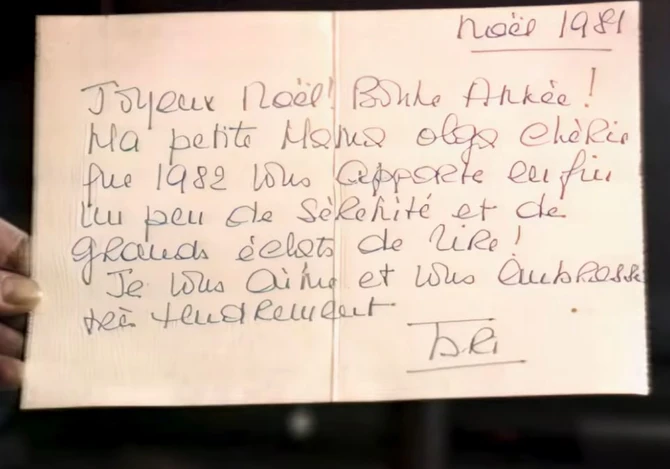 Noël 1981
Joyeux Noël! Bonne Année!
Ma petite Mama Olga chérie
que 1982 vous apporte enfin
un peu de sérénité et de
grands éclats de rire!
Je vous aime et vous embrasse
très tendrement